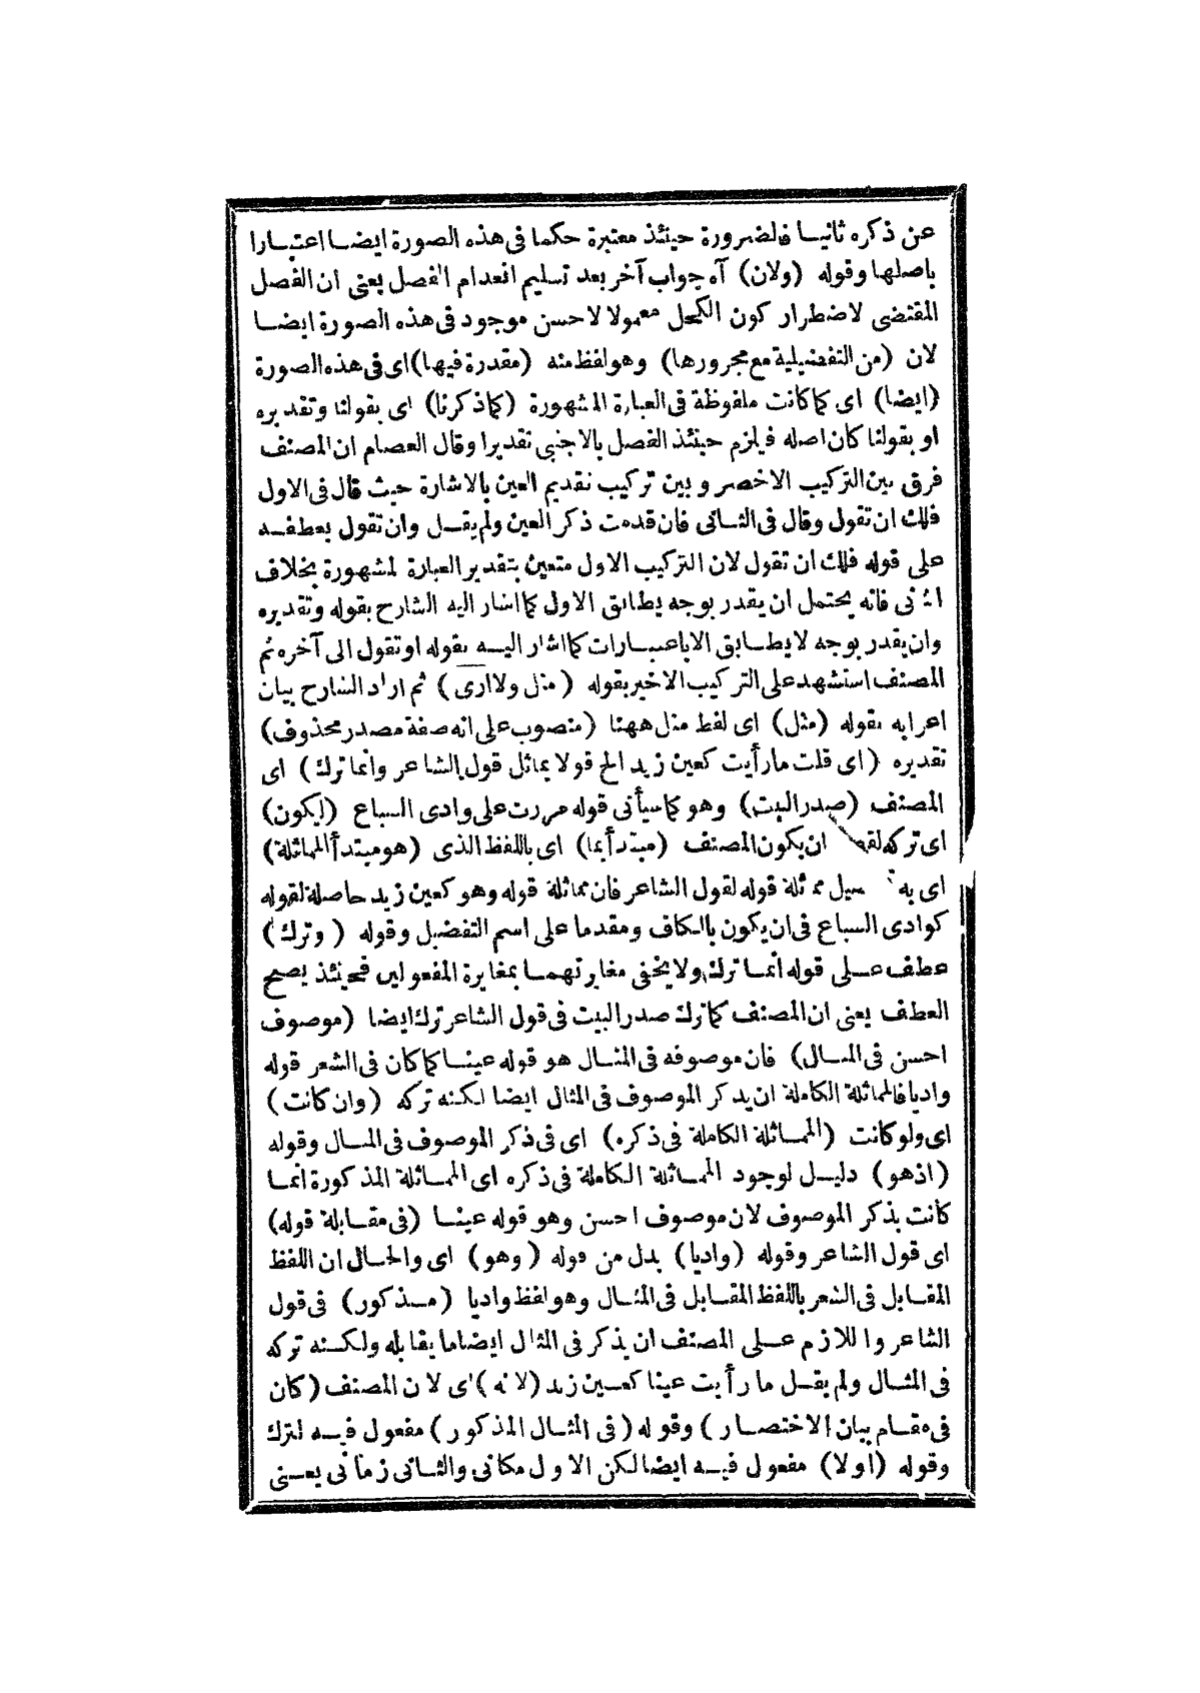 عن ذكره ثانيا فالضرورة حينئذ معتبرة حكما فى هذه الصورة ايضا اعتبارا
باصلها وقوله (ولان) آه جواب آخر بعد تسليم انعدام الفصل يعنى ان الفصل
المقتضى لاضطرار كون الكحل معمولا لاحسن موجود فى هذه الصورة ايضا
لان (من التفضيلية مع مجرورها) وهو لفظ منه (مقدرة فيها) اى فى هذه الصورة
(ايضا) اى كما كانت ملفوظة فى العبارة المشهورة (كما ذكرنا) اى بقولنا وتقديره
او بقولنا كان اصله فيلزم حينئذ الفصل بالاجنبى تقديرا وقال العصام ان المصنف
فرق بين التركيب الاخصر وبين تركيب تقديم العين بالاشارة حيث قال فى الاول
فلك ان تقول وقال فى الثانى فان قدمت ذكر العين ولم يقل وان تقول بعطفه
على قوله فلك ان تقول لان التركيب الاول متعين بتقدير العبارة لمشهورة بخلاف
الثانى فانه يحتمل ان يقدر بوجه يطابق الاول كما اشار اليه الشارح بقوله وتقديره
وان يقدر بوجه لا يطابق الاباعبارات كما اشار اليه بقوله او تقول الى آخره ثم
المصنف استشهد على التركيب الاخير بقوله (مثل ولا ارى) ثم اراد الشارح بيان
اعرابه بقوله (مثل) اى لفظ مثل ههنا (منصوب على انه صفة مصدر محذوف)
تقديره (اى قلت ما رأيت كعين زيد الخ قولا يماثل قول الشاعر وانما ترك) اى
المصنف (صدر البيت) وهو كما سيأتى قوله مررت على وادى السباع (ليكون)
اى تركه ان يكون المصنف (مبتدأ بما) اى باللفظ الذى (هو مبتدأ المماثلة)
اى به مماثلة قوله لقول الشاعر فان مماثلة قوله وهو كعين زيد حاصلة لقوله
كوادى السباع فى ان يكون بالكاف ومقدما على اسم التفضيل وقوله (وترك)
عطف على قوله انما ترك ولا يخفى مغايرتهما بمغايرة المفعولين فحينئذ يصح
العطف يعنى ان المصنف كما ترك صدر البيت فى قول الشاعر ترك ايضا (موصوف
احسن فى المثال) فان موصوفه فى المثال هو قوله عينا كما كان فى الشعر قوله
واديا فالمماثلة الكاملة ان يذكر الموصوف فى المثال ايضا لكنه تركه (وان كانت)
اى ولو كانت (المماثلة الكاملة فى ذكره) اى فى ذكر الموصوف فى المثال وقوله
(اذ هو) دليل لوجود المماثلة الكاملة فى ذكره اى المماثلة المذكورة انما
كانت بذكر الموصوف لان موصوف احسن وهو قوله عينا (فى مقابلة قوله)
اى قول الشاعر وقوله (واديا) بدل من قوله (وهو) اى والحال ان اللفظ
المقابل فى الشعر باللفظ المقابل فى المثال وهو لفظ واديا (مذكور) فى قول
الشاعر واللازم على المصنف ان يذكر فى المثال ايضا ما يقابله ولكنه تركه
فى المثال ولم يقل ما رأيت عينا كعين زيد (لانه) اى لان المصنف (كان
فى مقام بيان الاختصار) وقوله (فى المثال المذكور) مفعول فيه لترك
وقوله (اولا) مفعول فيه ايضا لكن الاول مكانى والثانى زمانى يعنى